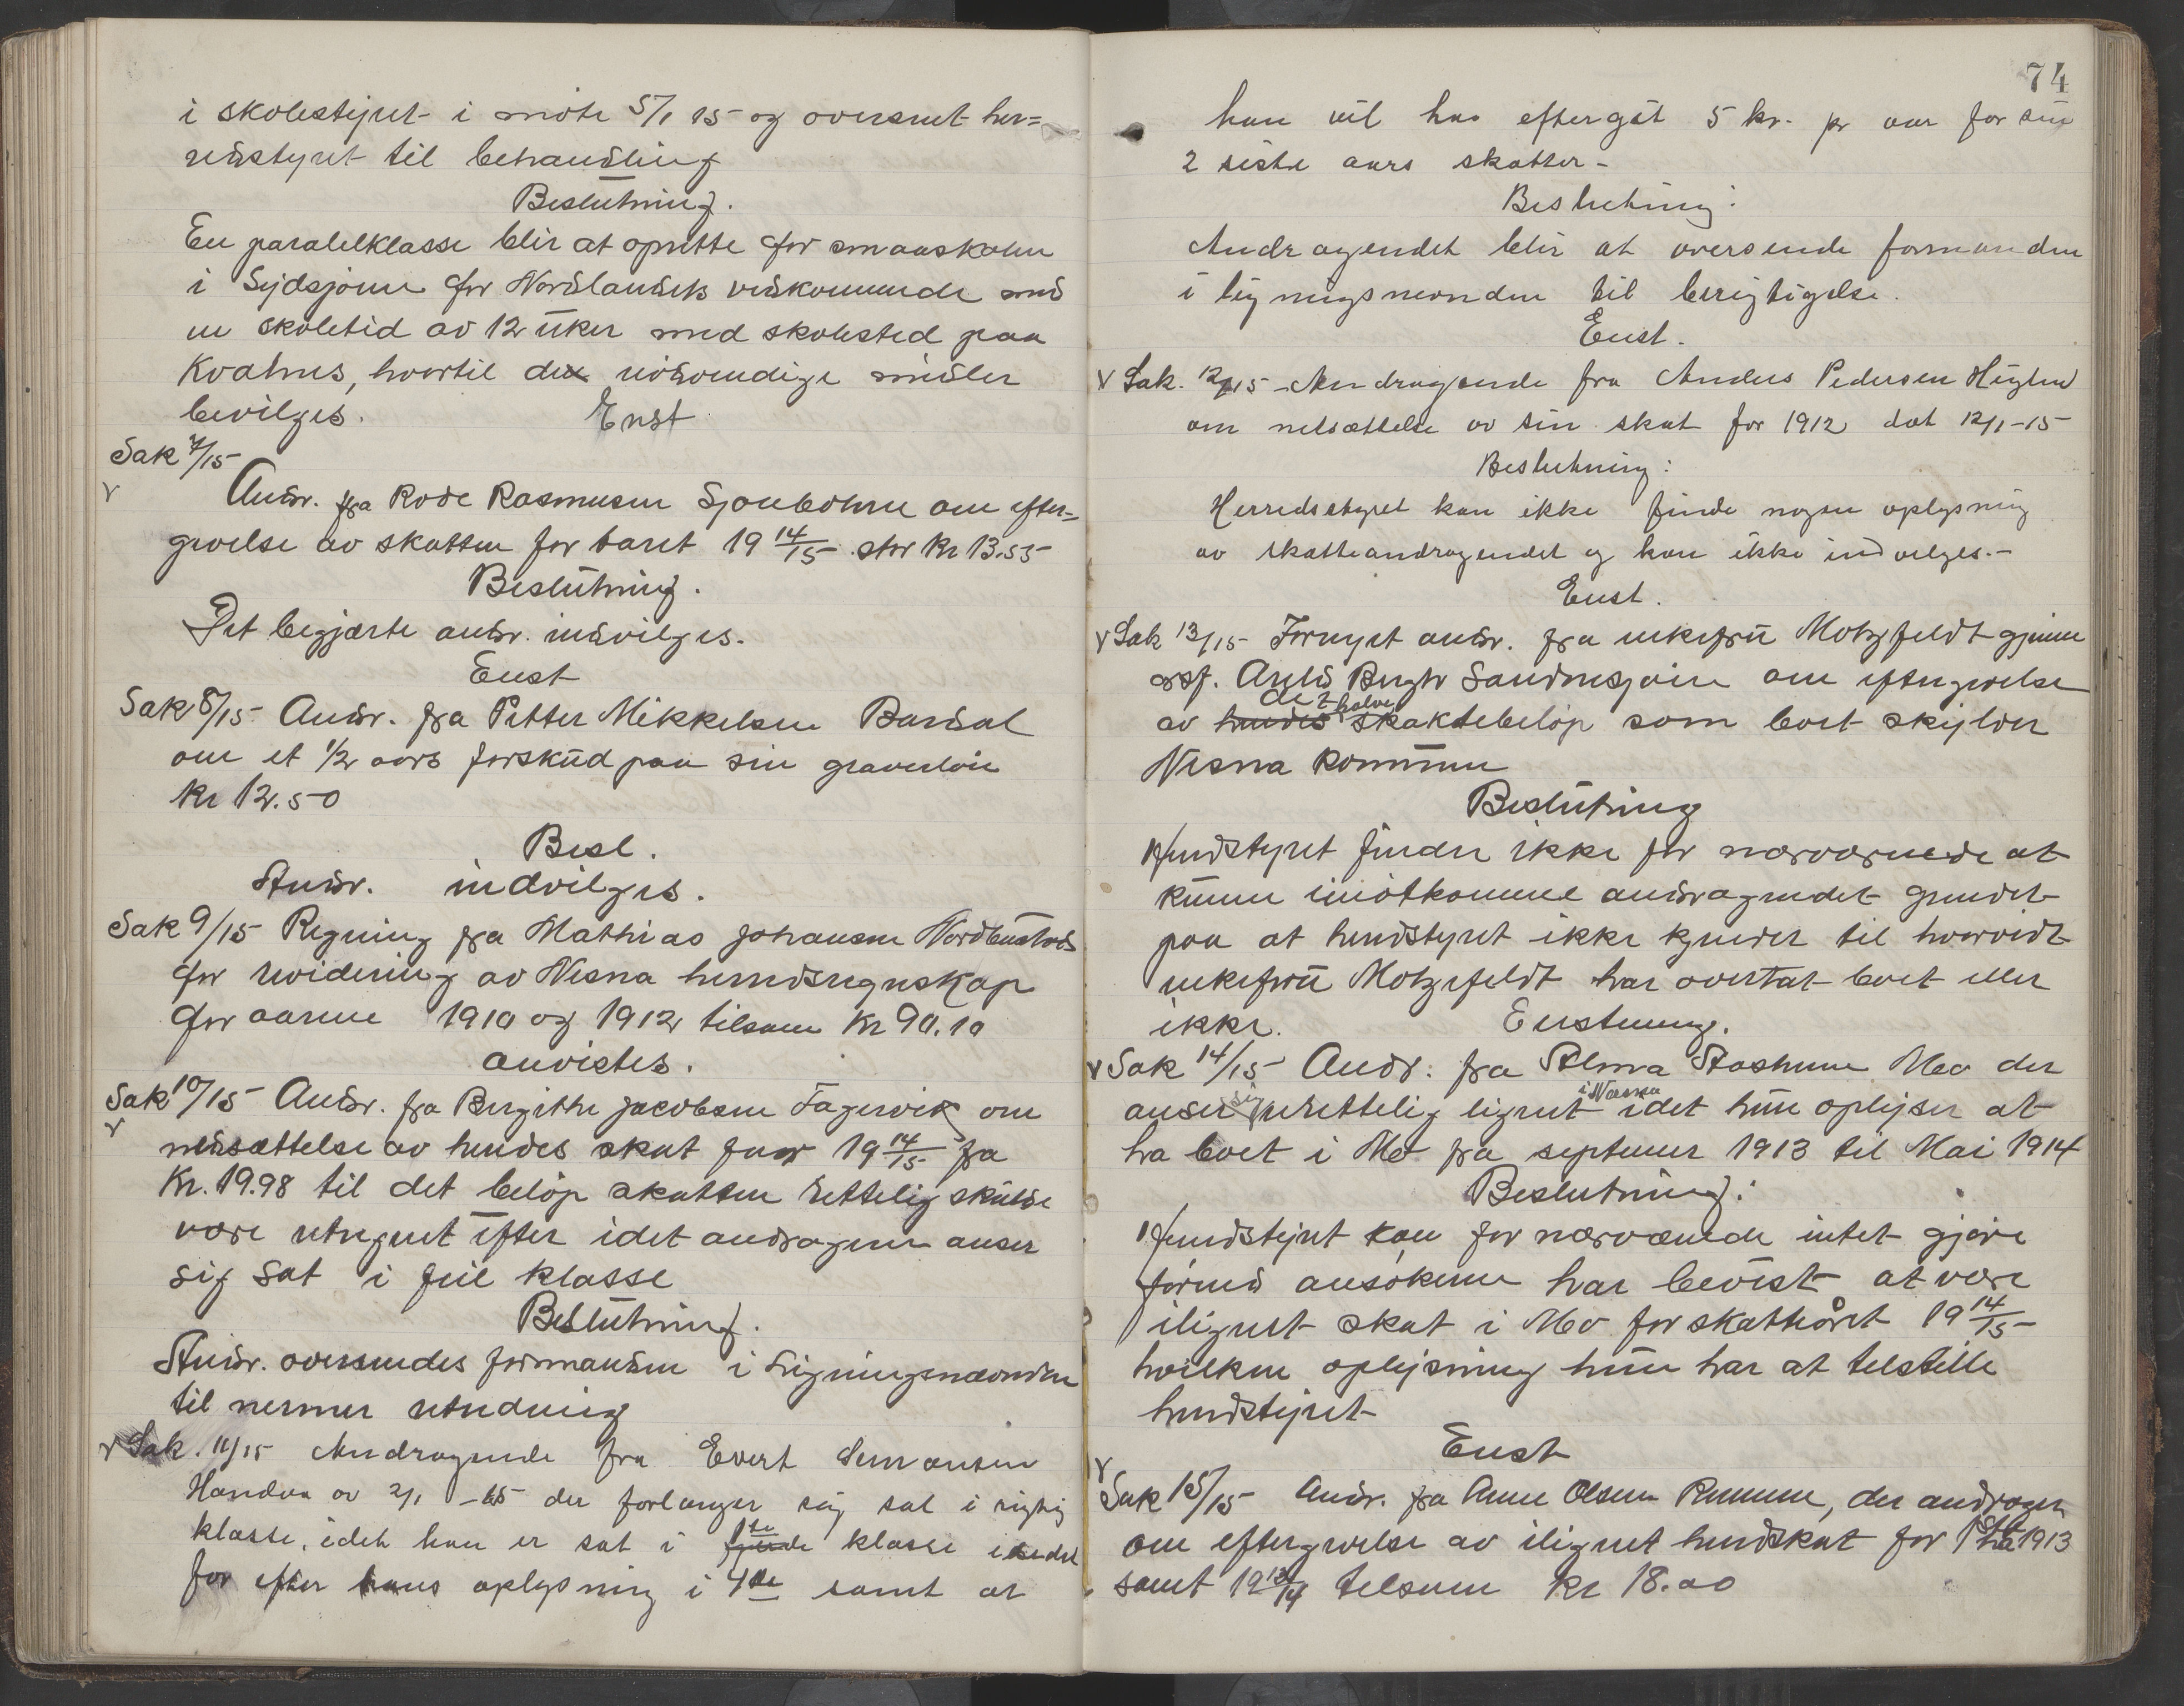 i skolestyret i møte 5/1 15 og oversent her=
redstyret til behandling
Beslutning.
En paralelklasse blir at oprette for smaaskolen
i Sydsjonen for Nordlandets vedkommende med
en skoletid av 12 uker med skolested paa
Kvalnes, hvortil de nödvendige midler
bevilges. Enst
Sak 7/15
Andr. fra Rode Rasmusen Sjonbotnen om efter=
givelse av skatten for baret 19 14/15 stor Kr 13.55
Beslutning.
Det begjærte andr. indvilges.
Enst
Sak 8/15 Andr. fra Petter Mikkelsen Bardal
om et 1/2 aars forskud paa sin graverlön
Kr 12.50
Besl.
Andr. indvilges.
Sak 9/15 Regning fra Mathias Johansen
for revidering av Nesna herredsregnskap
for aarene 1910 og 1912 tilsam Kr 90.10
anvistes.
Sak 10/15 Andr. fra Bergitte Jacobsen Fagervik om
nedsættelse av hendes skat for 19 14/15 fra
Kr. 19.98 til det belöp skatten rettelig skulde
være utregnet efter idet andrageren anser
sig sat i feil klasse
Beslutning.
Andr. oversendes formanden i Ligningsnævnden
til nermer utredning
Sak. 11/15 Andragende fra Evert Simonsen
Handnes av 2/1 -15 der forlanger sig sat i rigtig
klasse, idet han er sat i 1ste klasse istedet
for efter hans oplysning i 4de samt at
74
han vil ha eftergit 5 kr. pr aar for sin
2 siste aars skatter-
Beslutning:
Andragendet blir at oversende formanden
i ligningsnevnden til berigtigelse.
Enst.
Sak. 12/15 Andragende fra Anders Pedersen
om netsættelse av sin skat for 1912 dat 12/1-15
Beslutning:
Herredsstyret kan ikke finde nogen oplysning
av skatteandragendet og kan ikke indvelges.-
Enst.
Sak 13/15 Fornyet andr. fra enkefru Motzfeldt gjennem
Sandnesjöen om eftergivelse
av hendes de 2 halve skattebelöp som boet skylder
Nesna kommune
Beslutning
Herredstyret finder ikke for nærværende at
kunne imötkomme andragendet grundet
paa at herredstyret ikke kjender til hvorvidt
enkefru Motzfeldt har overtat boet eller
ikke. Enstemmig.
Sak 14/15 Andr. fra Alma Mo der
anser sig urettelig lignet i Næsna idet hun oplyser at
ha boet i Mo fra septemer 1913 til Mai 1914
Beslutning:
Herredstyret kan for nærværende intet gjöre
förend ansökeren har bevist at være
ilignet skat i Mo for skatteåret 19 14/15
hvilken oplysning hun har at telstille
herredstyret
Enst
Sak 15/15 Andr. fra Anne Olsen Remmen, der androger
om eftergivelse av ilignet herredskat for 1ste ha 1913
samt 19 13/14 telsam Kr 18.00